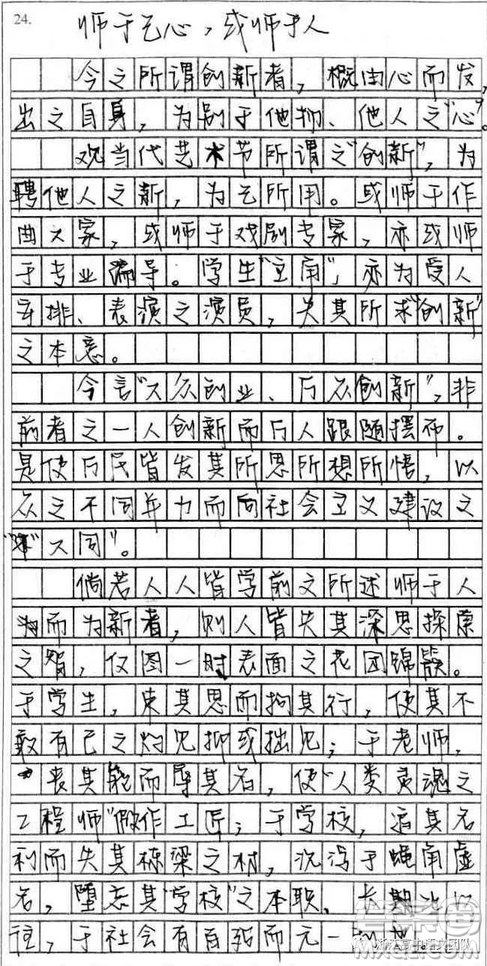 24.
师于己心，或师于人
今之所谓创新者，概由心而发，
出之自身，为别于他物、他人之“心”
观当代艺术节所谓之“创新”，为
聘他人之新，为己所用。或师于作
曲大家，或师于戏剧专家，亦或师
于专业编导。学生“主角”，亦为受人
安排、表演之演员，失其所求“创新”
之本意。
今言“大众创业、万众创新”，非
前者之一人创新而万人跟随摆布。
是使万民皆发其所思所想所悟，以
众之不同年力而向社会主义建设之
“大同”。
倘若人人皆学前文所述师于人
而为新者，则人皆失其深思探索
之智，仅图一时表面之花团锦簇。
于学生，束其思而拘其行，使其不
敢有己之灼见抑或拙见；于老师，
丧其能而辱其名，使“人类灵魂之
工程师”做作工匠；于学校，追其名
利而失其栋梁之材，沉浮于蝇角虚
名，堕忘其“学校”之本职。长期以
往，于社会有百弊而无一